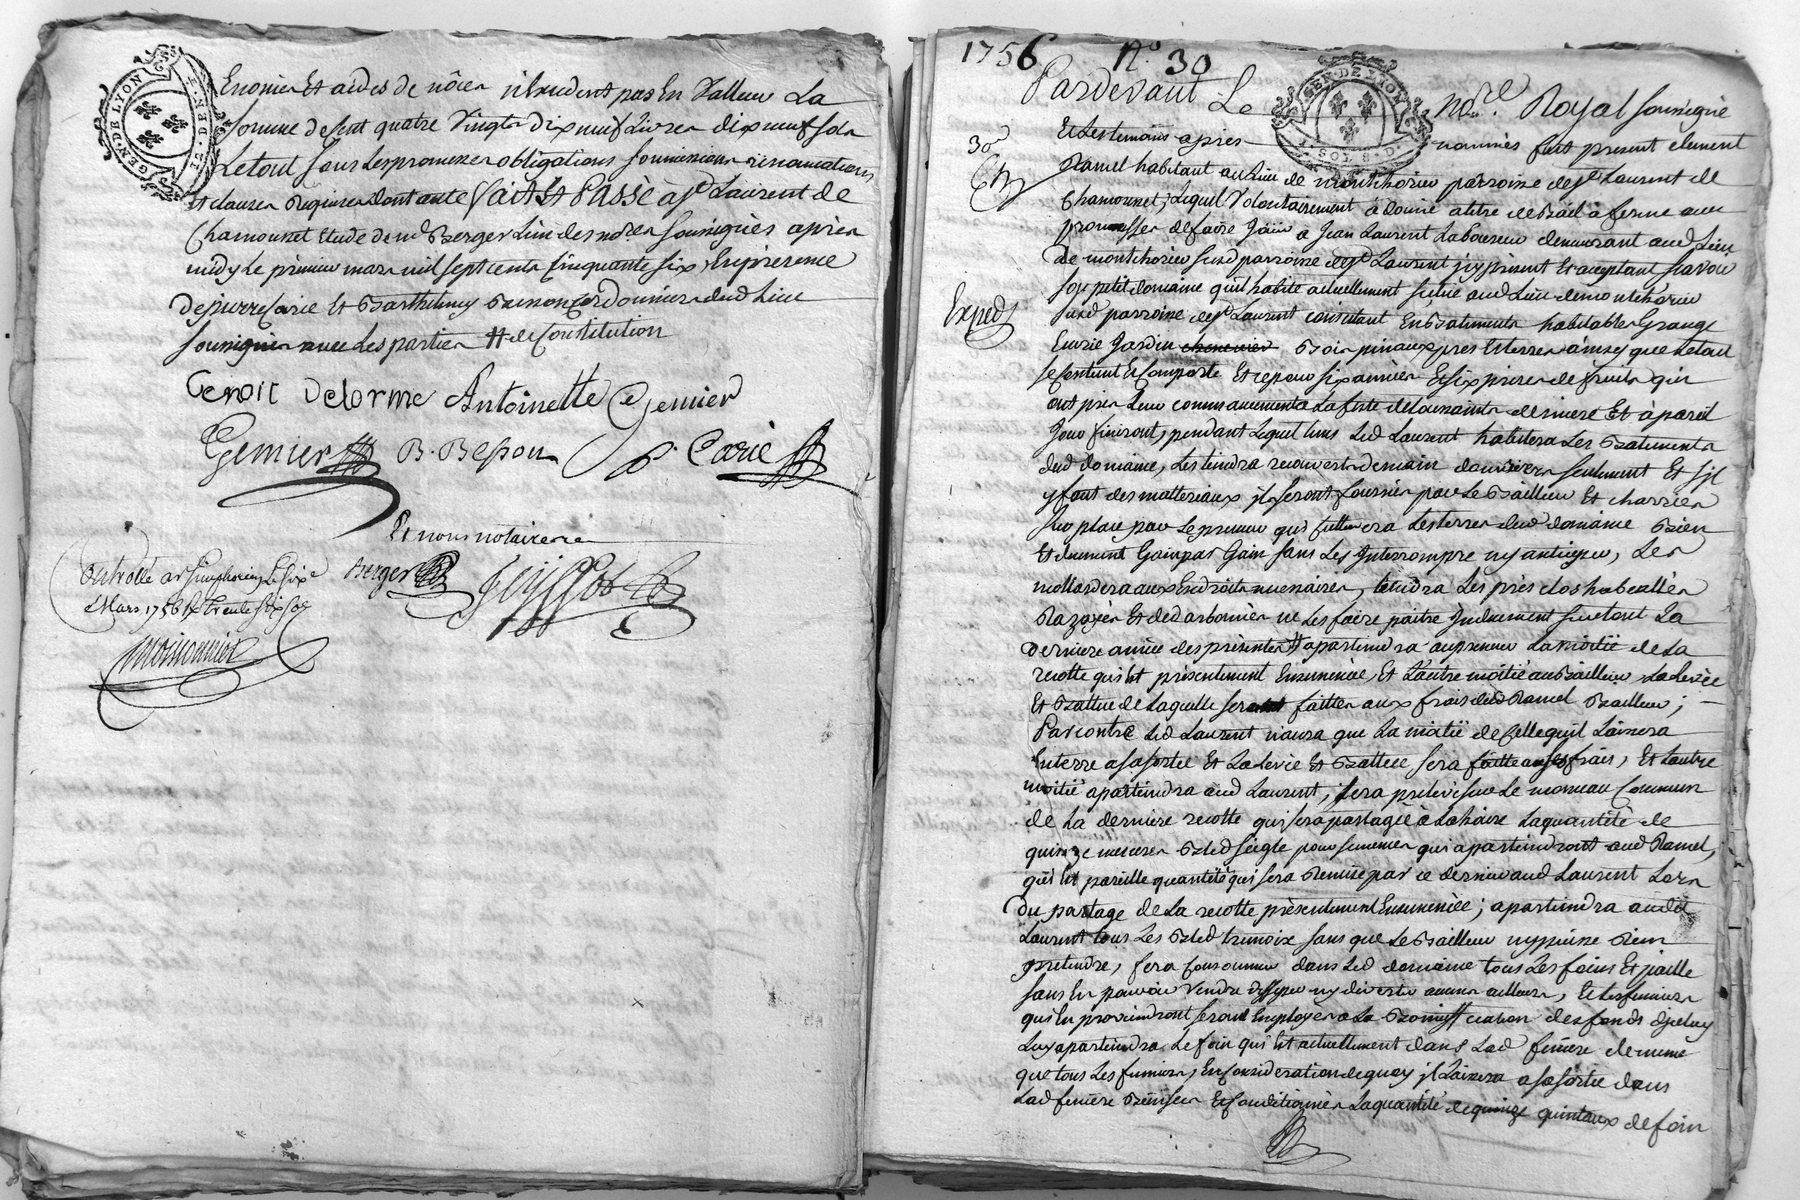 GEN. DE LYON
Enonier Et aides de nôces n'Excedent pas En Valleur La
somme de Cent quatre Vingts dix neuf Livres dix neuf sols
Le tout sous Les promesses obligations soumissions renonciations
et clauses Requises dont acte Fait Et Passé a St Laurent de
Chamousset Etude de me Berger L'un des nores soussignés aprés
midy Le premier mars mil sept cents Cinquante six, En présence
de pierre Carie Et Barthelemy Besson Cordonniers dud Lieu
soussignés avec Les parties # de Constitution
Benoit Delorme Antoinette Gemier
Gemier B. Besson P. Carie
Et nous notaires
Berger
Controllé a St Simphorien Le six e
Mars 1756 R trente six sols
1756 No. 30
Pardevant Le nore. Royal soussigné
GEN. DE LYON
Et Les temoins aprés nommés fut present clement
30e
Ramel habitant au Lieu de montchorier parroisse de St Laurent de
Chamousset, Lequel Volontairement a donné a titre de Bail a ferme avec
promesse de faire Jouir a Jean Laurent Laboureur demeurant aud Lieu
de montchorier susd parroisse de St Laurent jcy présent Et acceptant sçavoir
Exped
son petit domaine qu'il habite actuellement situé aud Lieu de montchorier
susd parroisse de St Laurent consistant En Batiments habitables Grange
Ecurie Jardin chenevier Bois pinaux pres Et terres ainsy que Le tout
se Contient Et Comporte Et ce pour six années Et six prises de fruits qui
ont pris Leur commancement a La feste de Toussaints derniere Et à pareil
Jour finiront, pendant Lequel tems Led Laurent habitera Les Batiments
dud domaine, Les tiendra recouverts de main d'ouvriers seulement Et s'il
y faut des matteriaux jls seront fournies par Le Bailleur Et charriés
sur place par Le preneur qui cultivera Les terres dud domaine Bien
Et duement Gain par Gain sans Les Interrompre ny anticiper, Les
mottardera aux Endroits necessaires, tiendra Les prés clos habeallés
Razoyés Et dedarbonnés ne Les faire paitre Induement surtout La
derniere année des présentes # apartiendra au preneur La moitié de La
recolte qui Est présentement Ensemencée, Et L'autre moitié au Bailleur, La Levée
Et Battue de Laquelle seront faittes aux frais dud Ramel Bailleur;
Par contre Led Laurent n'aura que La moitié de Celle qu'il Laissera
En terre a sa sortie Et La Levée Et Battue sera faitte a ses frais, Et L'autre
moitié apartiendra aud Laurent, sera prelevé sur Le monceau Commun
de La derniere recolte qui sera partagée à L'haire La quantité de
quinze mesures Bled seigle pour semences qui apartiendront aud Ramel,
qu'est pareille quantité qui sera Remise par ce dernier aud Laurent Lors
du partage de La recolte présentement Ensemencée; apartiendra audit
Laurent tous Les Bled tremoix sans que Le Bailleur ny puisse Rien
pretendre, sera Consommer dans Led domaine tous Les foins Et paille
sans En pouvoir Vendre dissiper ny divertir aucuns ailleurs, Et Les fumiers
qui En proviendront seront Employés a La Boniffication des fonds d'jceluy
Luy apartiendra Le foin qui Est actuellement dans Lad feniere de meme
que tous Les fumiers, En Consideration de quoy jl Laissera a sa sortie dans
Lad feniere Bien sec Et Conditionnés La quantité de quinze quintaux de foin